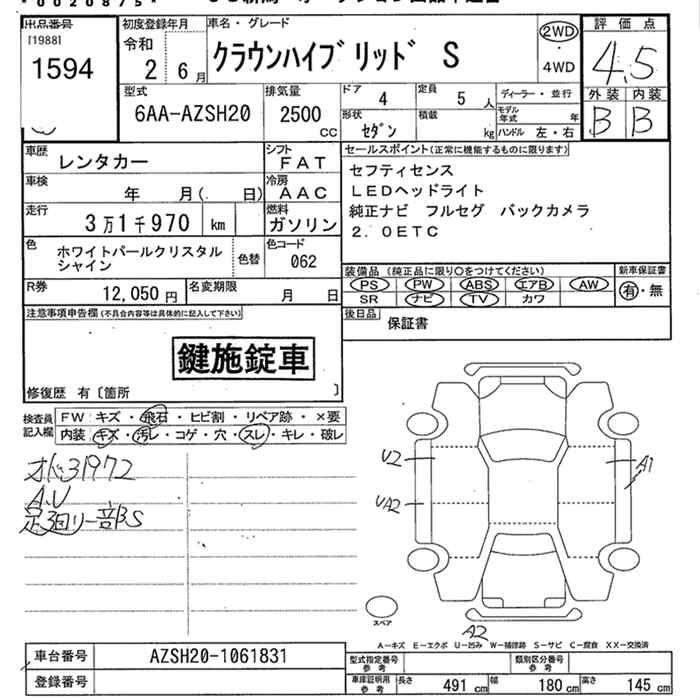 *0020875*
出品番号
[1988]
1594
初度登録年月
令和
2 6月
車名・グレード
クラウンハイブリッド S
2WD
・
4WD
評価点
4.5
外装 内装
B B
型式
6AA-AZSH20
排気量
2500
cc
ドア
4
定員
5 人
形状
セダン
積載
kg
ディーラー・並行
モデル年式 年
ハンドル 左・右
車歴
レンタカー
シフト
FAT
車検
年 月( 日)
冷房
AAC
走行
3万1千970 km
燃料
ガソリン
色
ホワイトパールクリスタル
シャイン
色替
色コード
062
R券
12,050円
名変期限
月 日
セールスポイント(正常に機能するものに限ります)
セフティセンス
LEDヘッドライト
純正ナビ フルセグ バックカメラ
2.0ETC
装備品 (純正品に限り○をつけてください)
PS PW ABS エアB AW
SR ナビ TV カワ
新車保証書
有・無
後日品
保証書
注意事項申告欄(不具合内容等は具体的に記入して下さい)
鍵施錠車
修復歴 有〔箇所 〕
検査員
記入欄
FW キズ・飛石・ヒビ割・リペア跡・×要
内装 キズ・汚レ・コゲ・穴・スレ・キレ・破レ
オド31972
A.U
足回リ一部BS
U2
UA2
A1
A2
スペア
A−キズ E−エクボ U−凹み W−補修跡 S−サビ C−腐食 XX−交換済
車台番号
AZSH20-1061831
登録番号
型式指定番号
参考
類別区分番号
参考
車庫証明用
参考
長さ 491 cm
幅 180 cm
高さ 145 cm